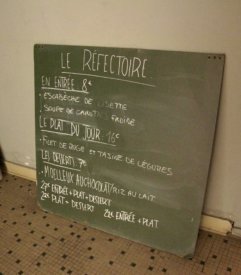 LE RÉFECTOIRE
EN ENTRÉE 8€
-ESCABÈCHE DE LISETTE
-SOUPE DE CAROTTE FROIDE
LE PLAT DU JOUR 16€
-FILET DE ET TAJINE DE LÉGUMES
LES DESSERTS 7€
-MOELLEUX AU CHOCOLAT/RIZ AU LAIT
27€ ENTRÉE+PLAT+DESSERT
22€ PLAT+DESSERT 22€ ENTRÉE+PLAT